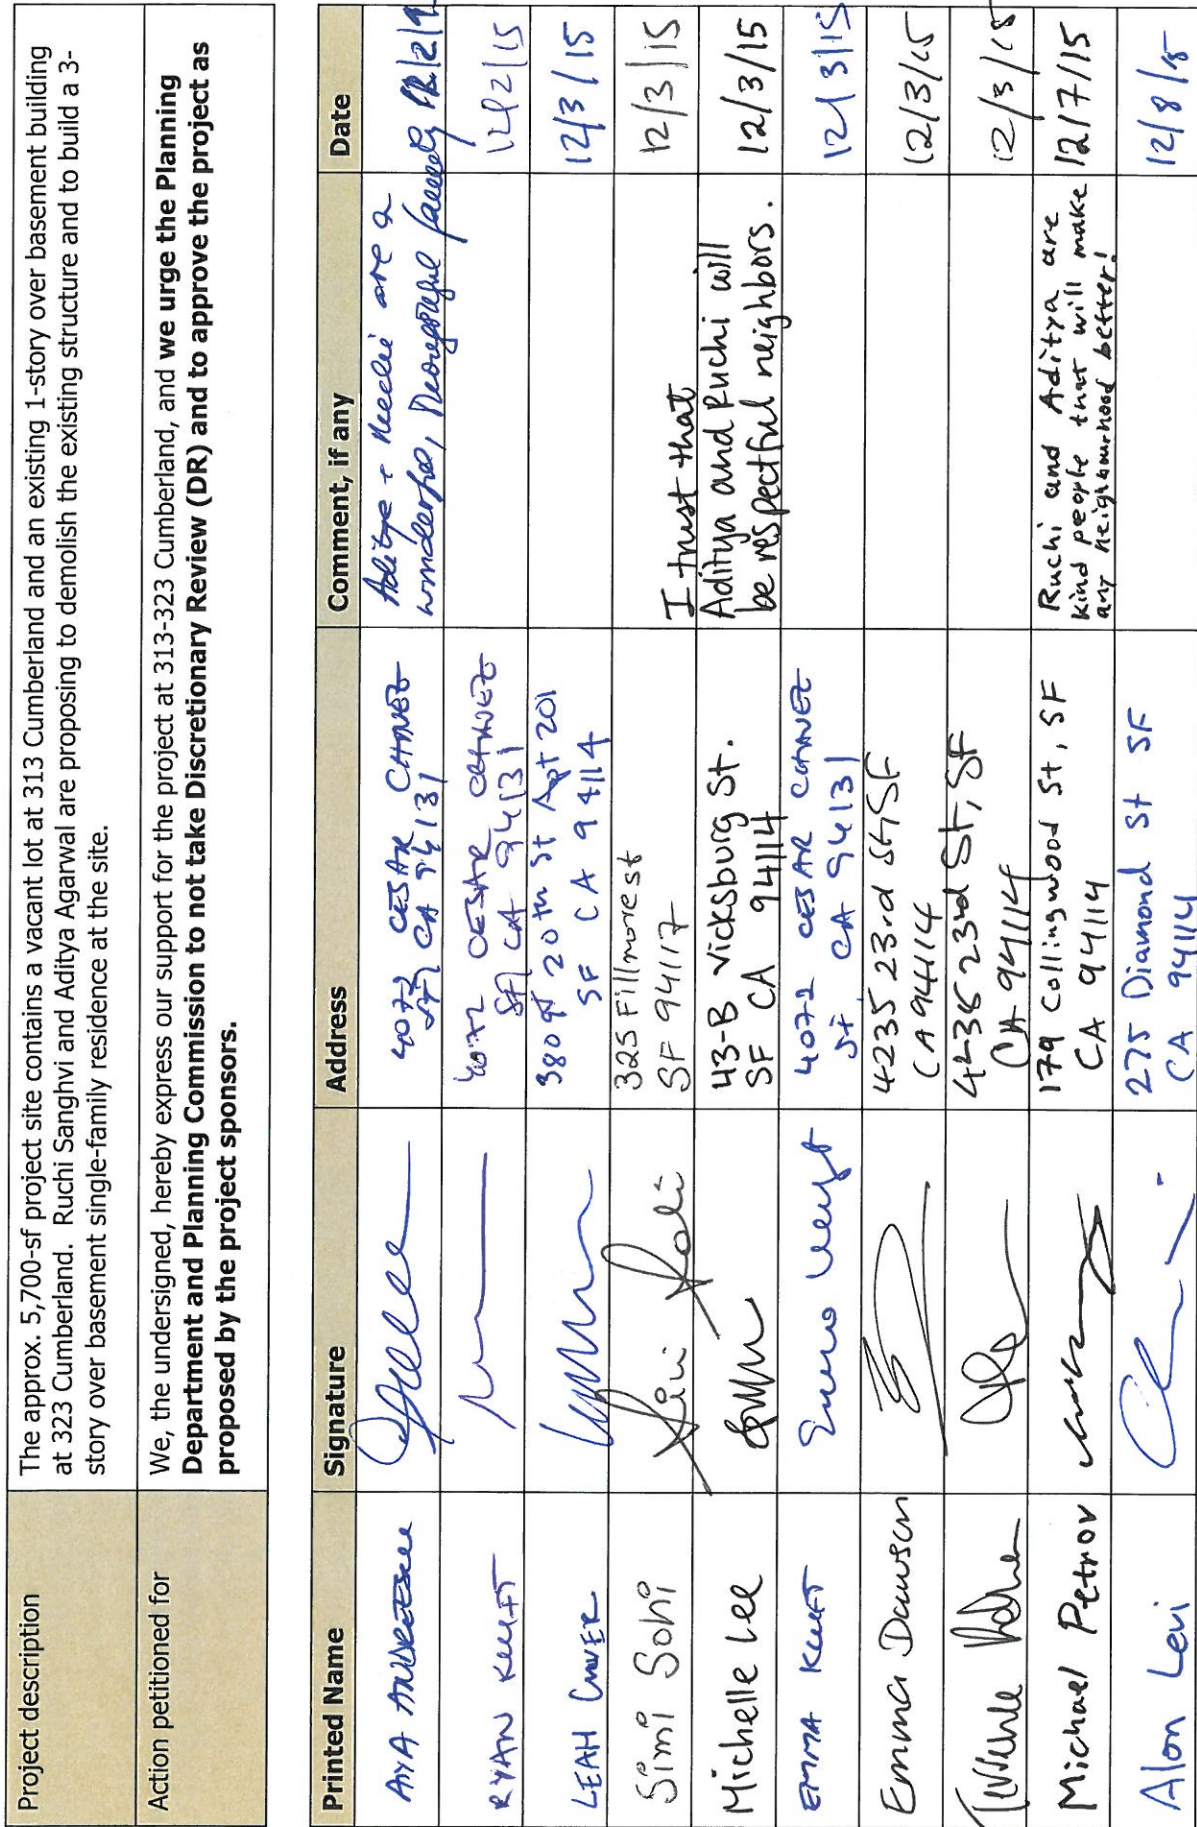 Project description
The approx. 5,700-sf project site contains a vacant lot at 313 Cumberland and an existing 1-story over basement building
at 323 Cumberland. Ruchi Sanghvi and Aditya Agarwal are proposing to demolish the existing structure and to build a 3-
story over basement single-family residence at the site.
Action petitioned for
We, the undersigned, hereby express our support for the project at 313-323 Cumberland, and we urge the Planning
Department and Planning Commission to not take Discretionary Review (DR) and to approve the project as
proposed by the project sponsors.
Printed Name Signature Address Comment, if any Date
4072 CESAR CHAVEZ
CA 94131
are a
wonderful, family
RYAN
4072 CESAR CHAVEZ
SF, CA 94131
12/2/15
LEAH
20TH St Apt 201
SF CA 94114
12/3/15
Simi Sohi
325 Fillmore st
SF 94117
12/3/15
Michelle Lee
43-B Vicksburg St.
SF CA 94114
I trust that
Aditya and Ruchi will
be respectful neighbors.
12/3/15
EMMA
4072 CESAR CHAVEZ
St CA 94131
12/3/15
Emma Dawson
4235 23rd St, SF
CA 94114
12/3/15
23rd St, SF
CA 94114
12/3/15
Michael Petrov
179 Collingwood St, SF
CA 94114
Ruchi and Aditya are
kind people that will make
any neighbourhood better!
12/7/15
Alon Levi
275 Diamond St SF
CA 94114
12/8/15